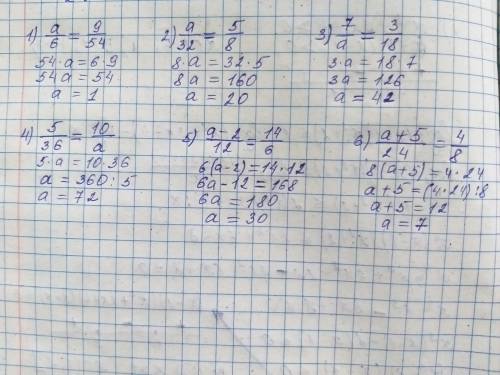 1) a/6 = 9/54
54·a = 6·9
54a = 54
a = 1
2) a/32 = 5/8
8·a = 32·5
8a = 160
a = 20
3) 7/a = 3/18
3·a = 18·7
3a = 126
a = 42
4) 5/36 = 10/a
5·a = 10·36
a = 360:5
a = 72
5) a-2/12 = 14/6
6(a-2) = 14·12
6a-12 = 168
6a = 180
a = 30
6) a+5/24 = 4/8
8(a+5) = 4·24
a+5 = (4·24):8
a+5 = 12
a = 7